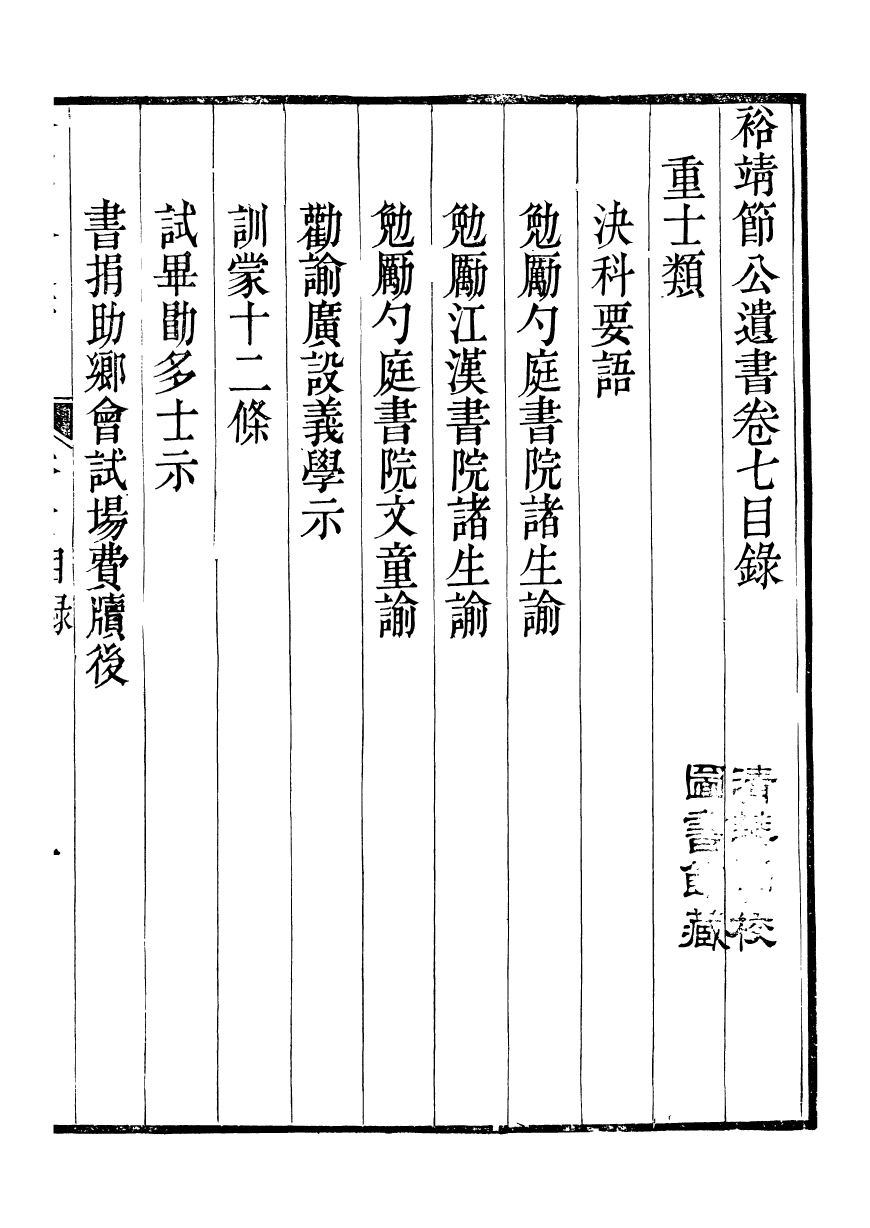 裕靖節公遺書卷七目錄
重士類
決科要語
勉勵勺庭書院諸生諭
勉勵江漢書院諸生諭
勉勵勺庭書院文童諭
勸諭廣設義學示
訓蒙十二條
試畢勖多士示
書捐助鄉會試場費牘後
目録
清華學校
圖書館藏